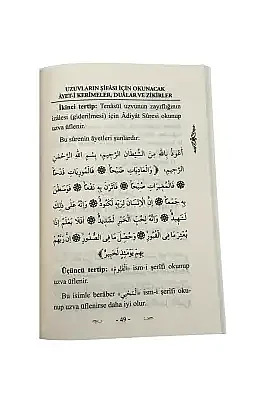 UZUVLARIN ŞİFASI İÇİN OKUNACAK
ÂYET-İ KERİMELER, DUÂLAR VE ZİKİRLER
İkinci tertip: Tenâsül uzvunun zayıflığının
izâlesi (giderilmesi) için Âdiyât Sûresi okunup
uzva üflenir.
Bu sûrenin âyetleri şunlardır:
أَعُوذُ بِاللّٰهِ مِنَ الشَّيْطَانِ الرَّجِيمِ، بِسْمِ اللّٰهِ الرَّحْمٰنِ
الرَّحِيمِ، ﴿وَالْعَادِيَاتِ ضَبْحًا ۞ فَالْمُورِيَاتِ قَدْحًا
۞ فَالْمُغِيرَاتِ صُبْحًا ۞ فَأَثَرْنَ بِهِ نَقْعًا ۞ فَوَسَطْنَ
بِهِ جَمْعًا ۞ إِنَّ الْإِنْسَانَ لِرَبِّهِ لَكَنُودٌ ۞ وَإِنَّهُ عَلَى ذٰلِكَ
لَشَهِيدٌ ۞ وَإِنَّهُ لِحُبِّ الْخَيْرِ لَشَدِيدٌ ۞ أَفَلَا يَعْلَمُ إِذَا
بُعْثِرَ مَا فِي الْقُبُورِ ۞ وَحُصِّلَ مَا فِي الصُّدُورِ ۞ إِنَّ رَبَّهُمْ
بِهِمْ يَوْمَئِذٍ لَخَبِيرٌ﴾
Üçüncü tertip: «اَلْقَيُّومُ» ism-i şerîfi okunup
uzva üflenir.
Bu isimle berâber «اَلْمُحْيِي» ism-i şerîfi oku-
nup uzva üflenirse daha iyi olur.
- 49 -